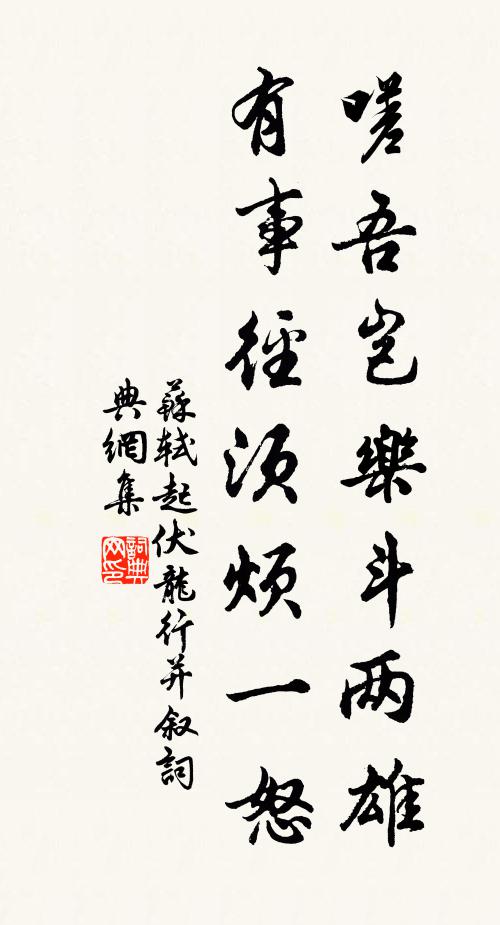 嗟吾岂樂斗两雄
有事徑須煩一怒
蘇轼起伏龍行并叙詞
典網集
詞典
网印